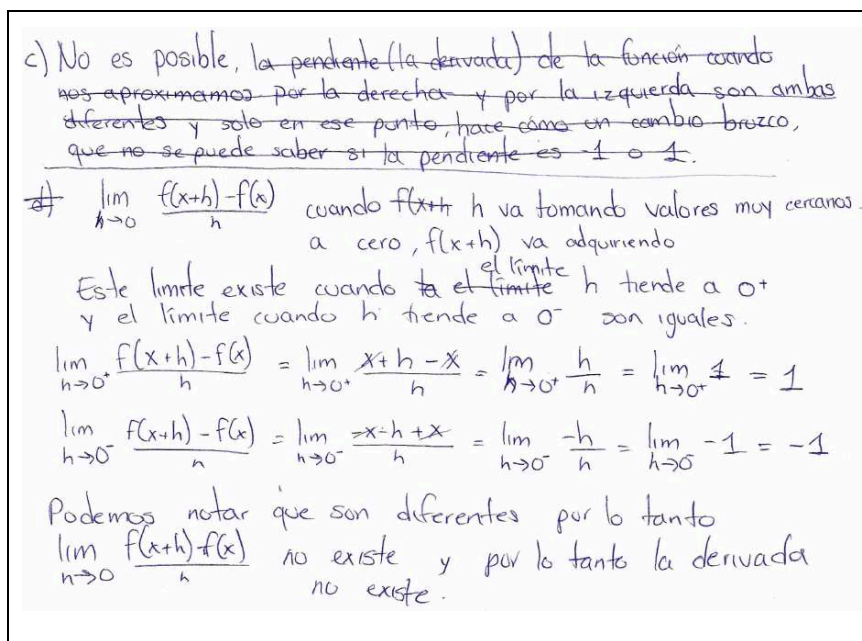 c) No es posible, la pendiente (la derivada) de la función cuando
nos aproximamos por la derecha y por la izquierda son ambas
diferentes y solo en ese punto, hace cómo un cambio bruzco,
que no se puede saber si la pendiente es -1 o 1.
d) lim h→0 f(x+h)-f(x)/h cuando f(x+h h va tomando valores muy cercanos
a cero, f(x+h) va adquiriendo
Este limite existe cuando la el límite el límite h tiende a 0⁺
y el límite cuando h tiende a 0⁻ son iguales.
lim h→0⁺ f(x+h)-f(x)/h = lim h→0⁺ x+h-x/h = lim h→0⁺ h/h = lim h→0⁺ 1 = 1
lim h→0⁻ f(x+h)-f(x)/h = lim h→0⁻ -x-h+x/h = lim h→0⁻ -h/h = lim h→0⁻ -1 = -1
Podemos notar que son diferentes por lo tanto
lim h→0 f(x+h)-f(x)/h no existe y por lo tanto la derivada
no existe.